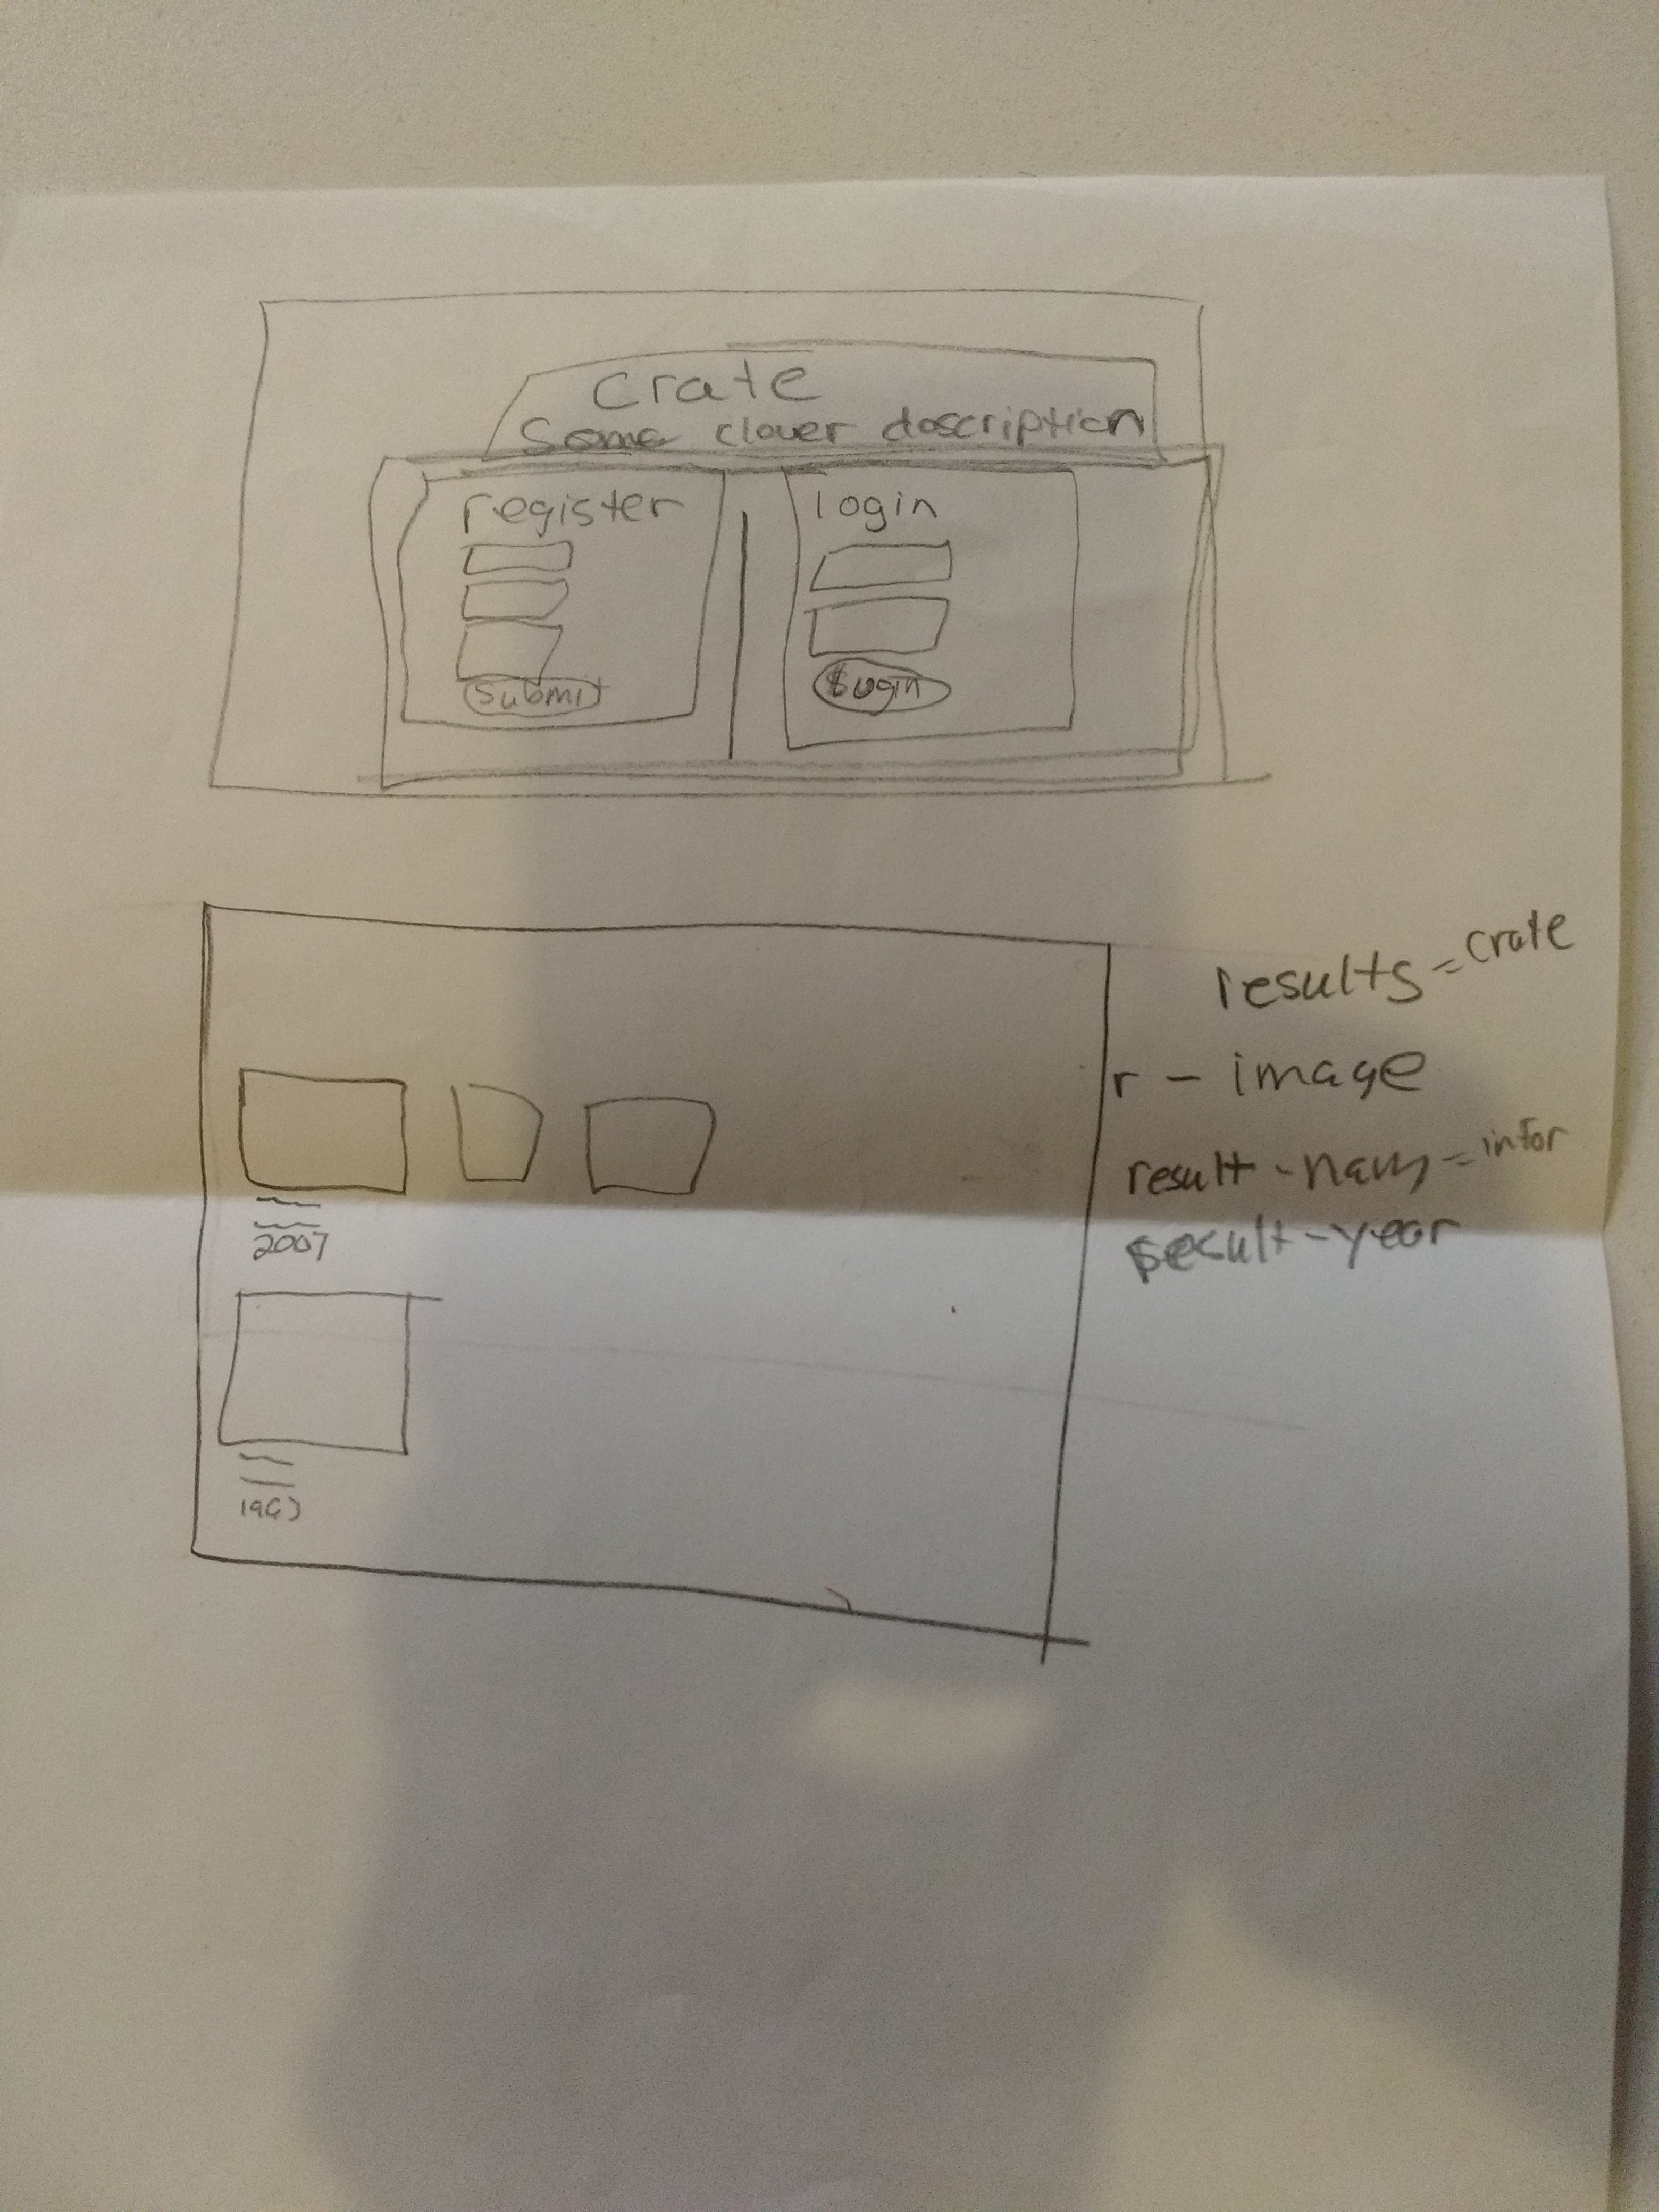 Crate
Some clever description
register
login
Submit
Login
results = crate
r - image
result - nam = infor
result - year
2007